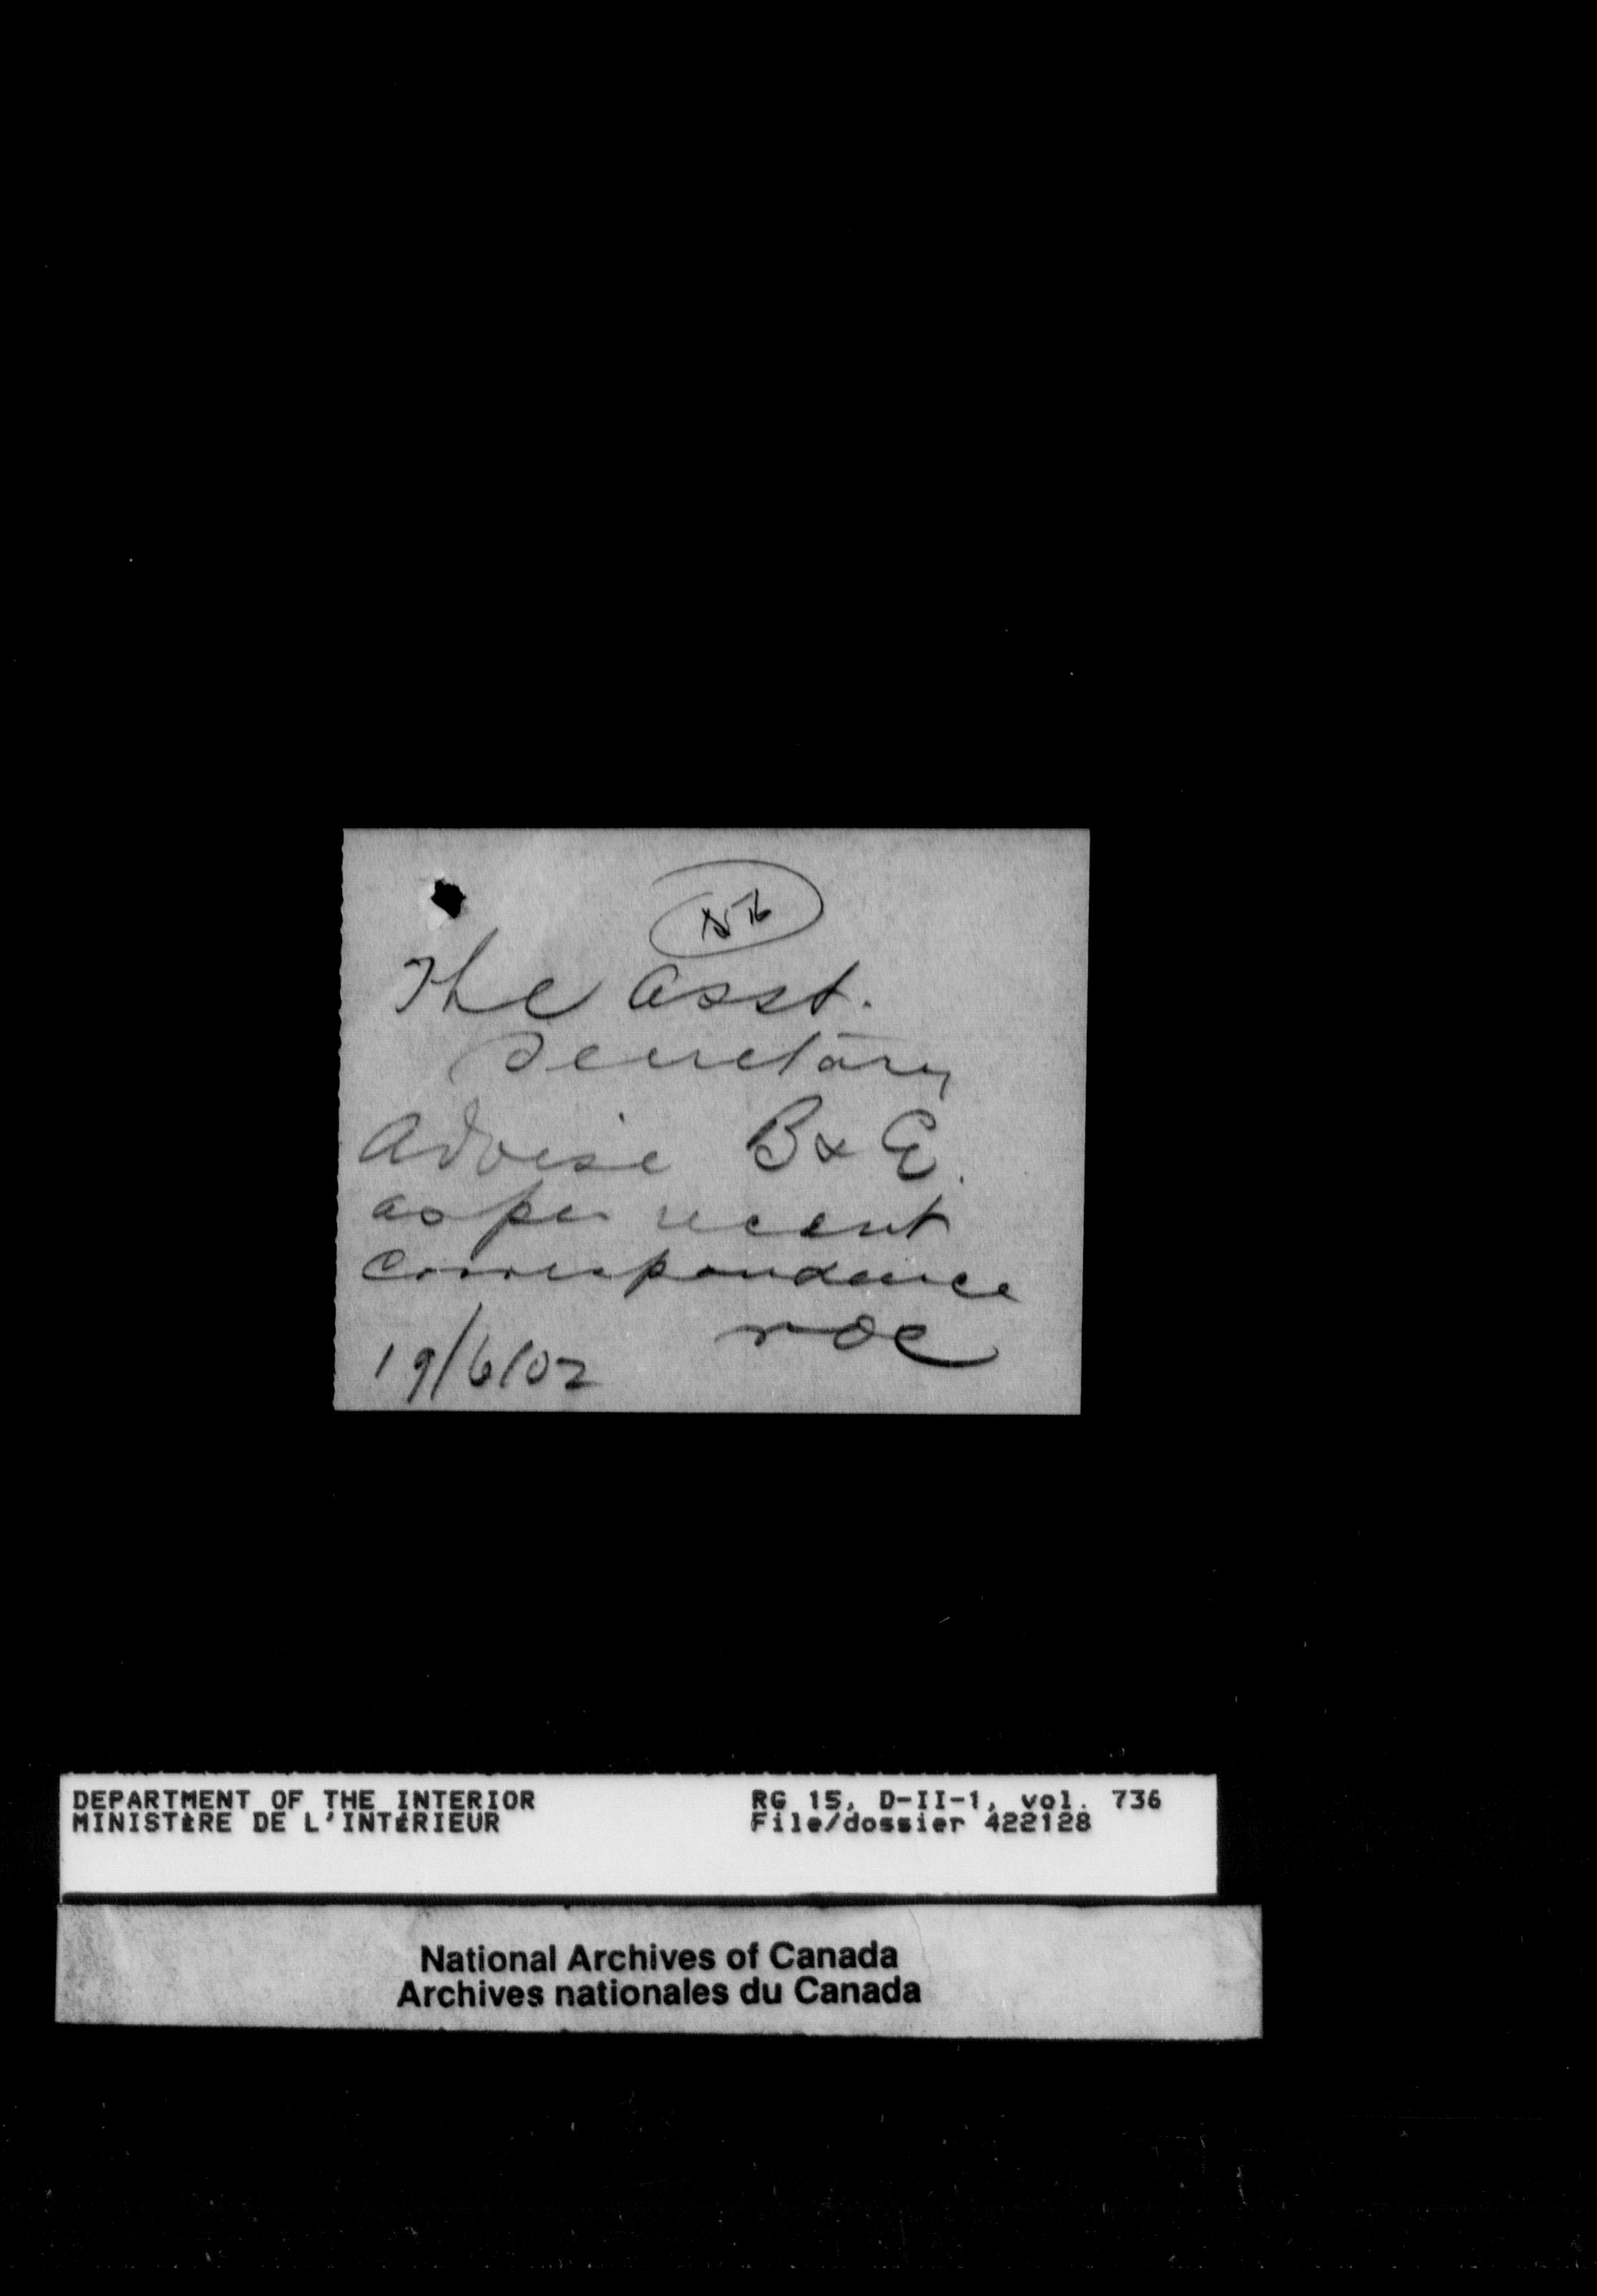 The Asst.
Secretary
Advise B & E.
as per recent
correspondence
19/6/02
DEPARTMENT OF THE INTERIOR
MINISTÈRE DE L'INTÉRIEUR
RG 15, D-II-1, vol. 736
File/dossier 422128
National Archives of Canada
Archives nationales du Canada